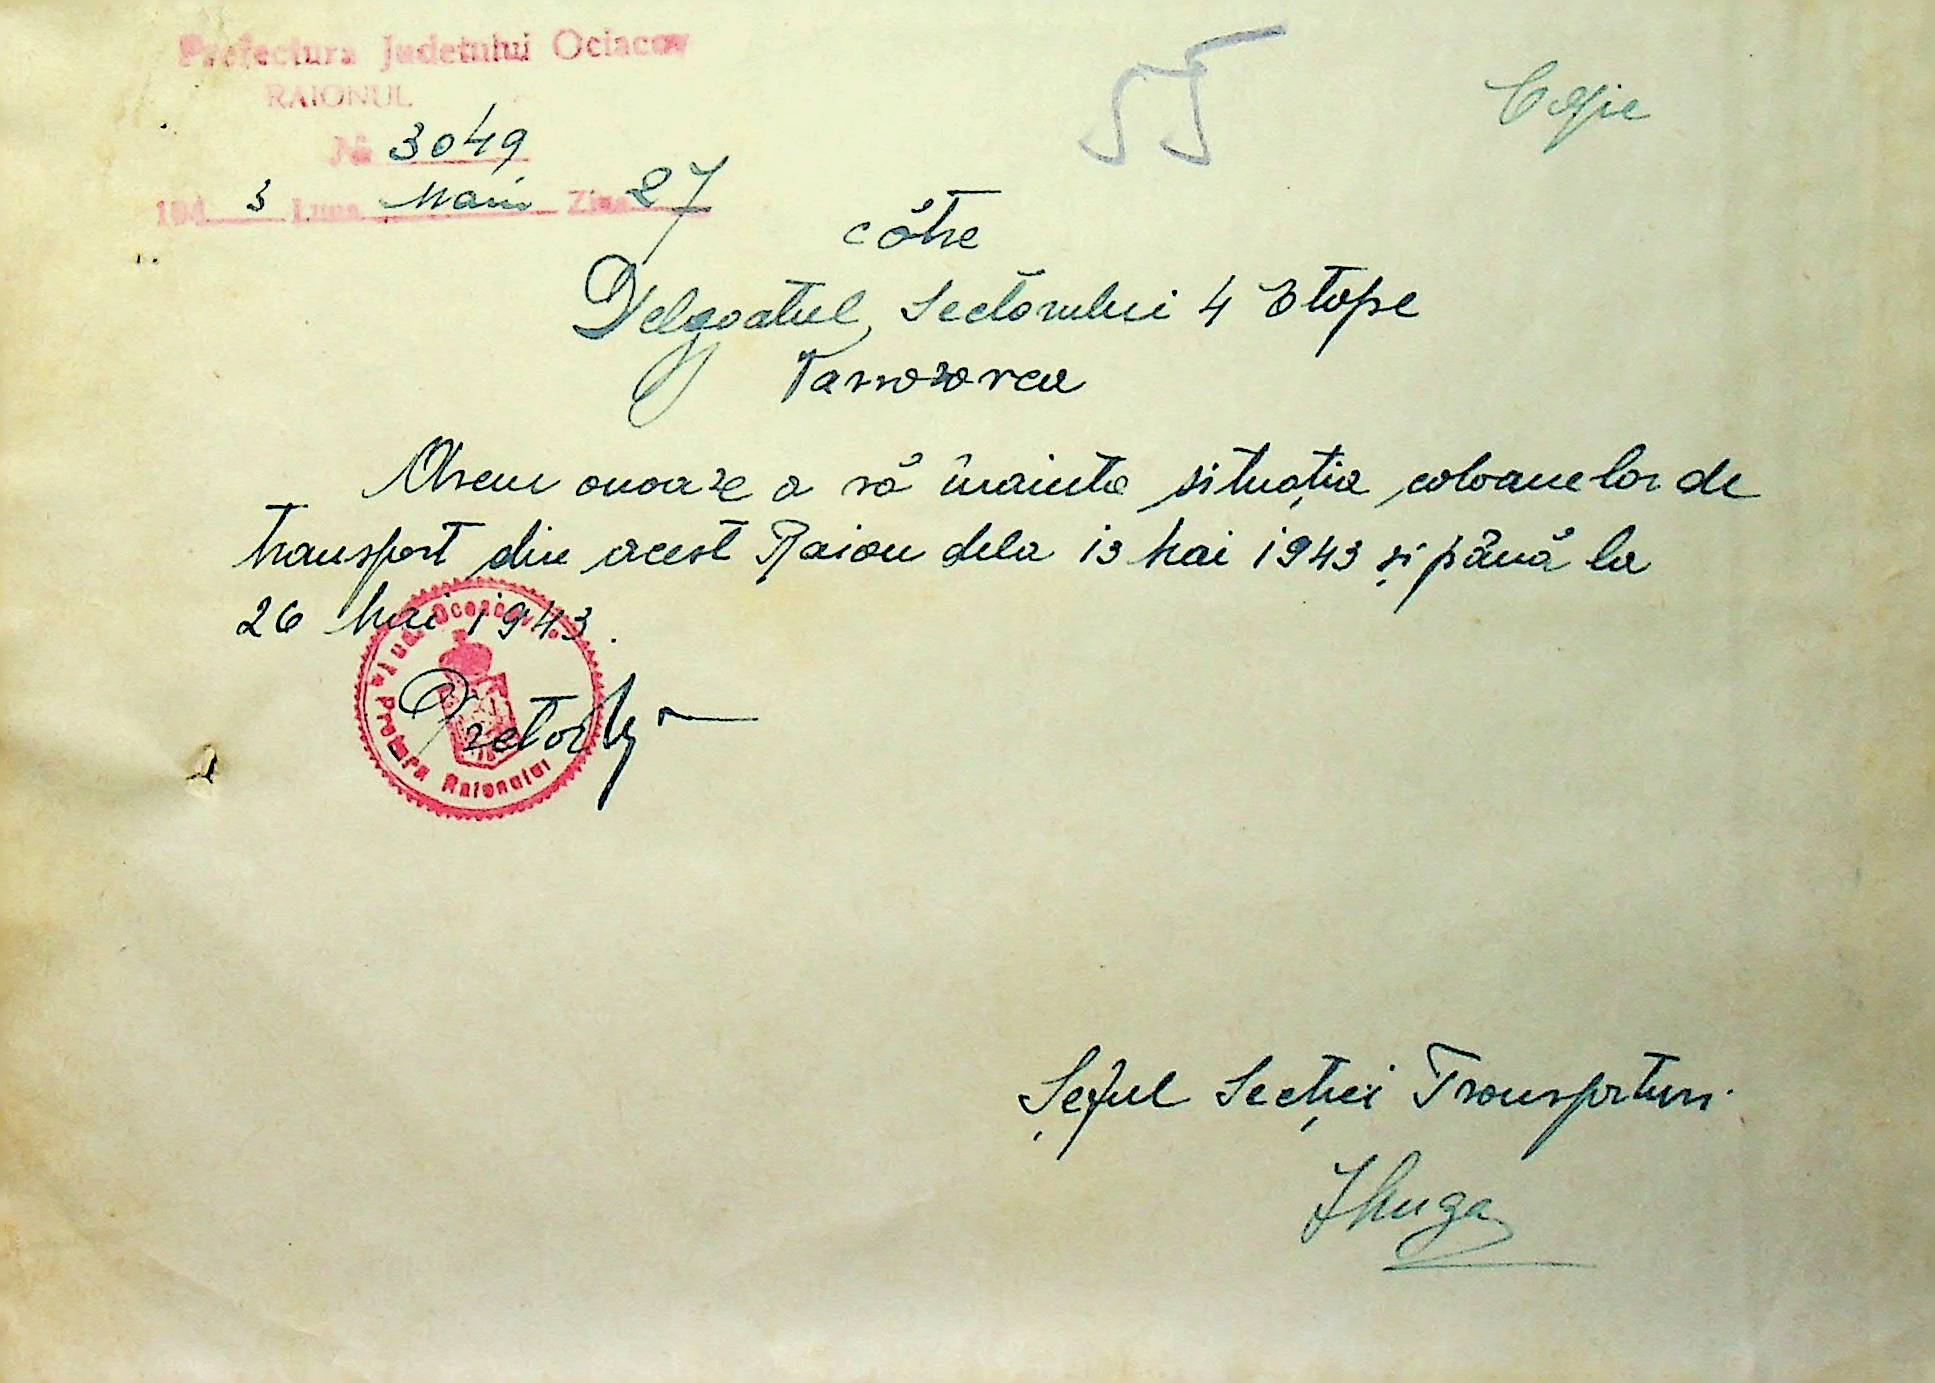 Prefectura Județului Ociacov
RAIONUL
№ 3049
194 3 Luna Maiu Ziua 27
55
Copie
către
Delegatul Sectorului 4 Etape
Avem onoare a vă înainta situația coloanelor de
transport din acest Raion dela 13 Mai 1943 și până la
26 Mai 1943.
Pretor
Pretura Raionului
Șeful Secției Transporturi